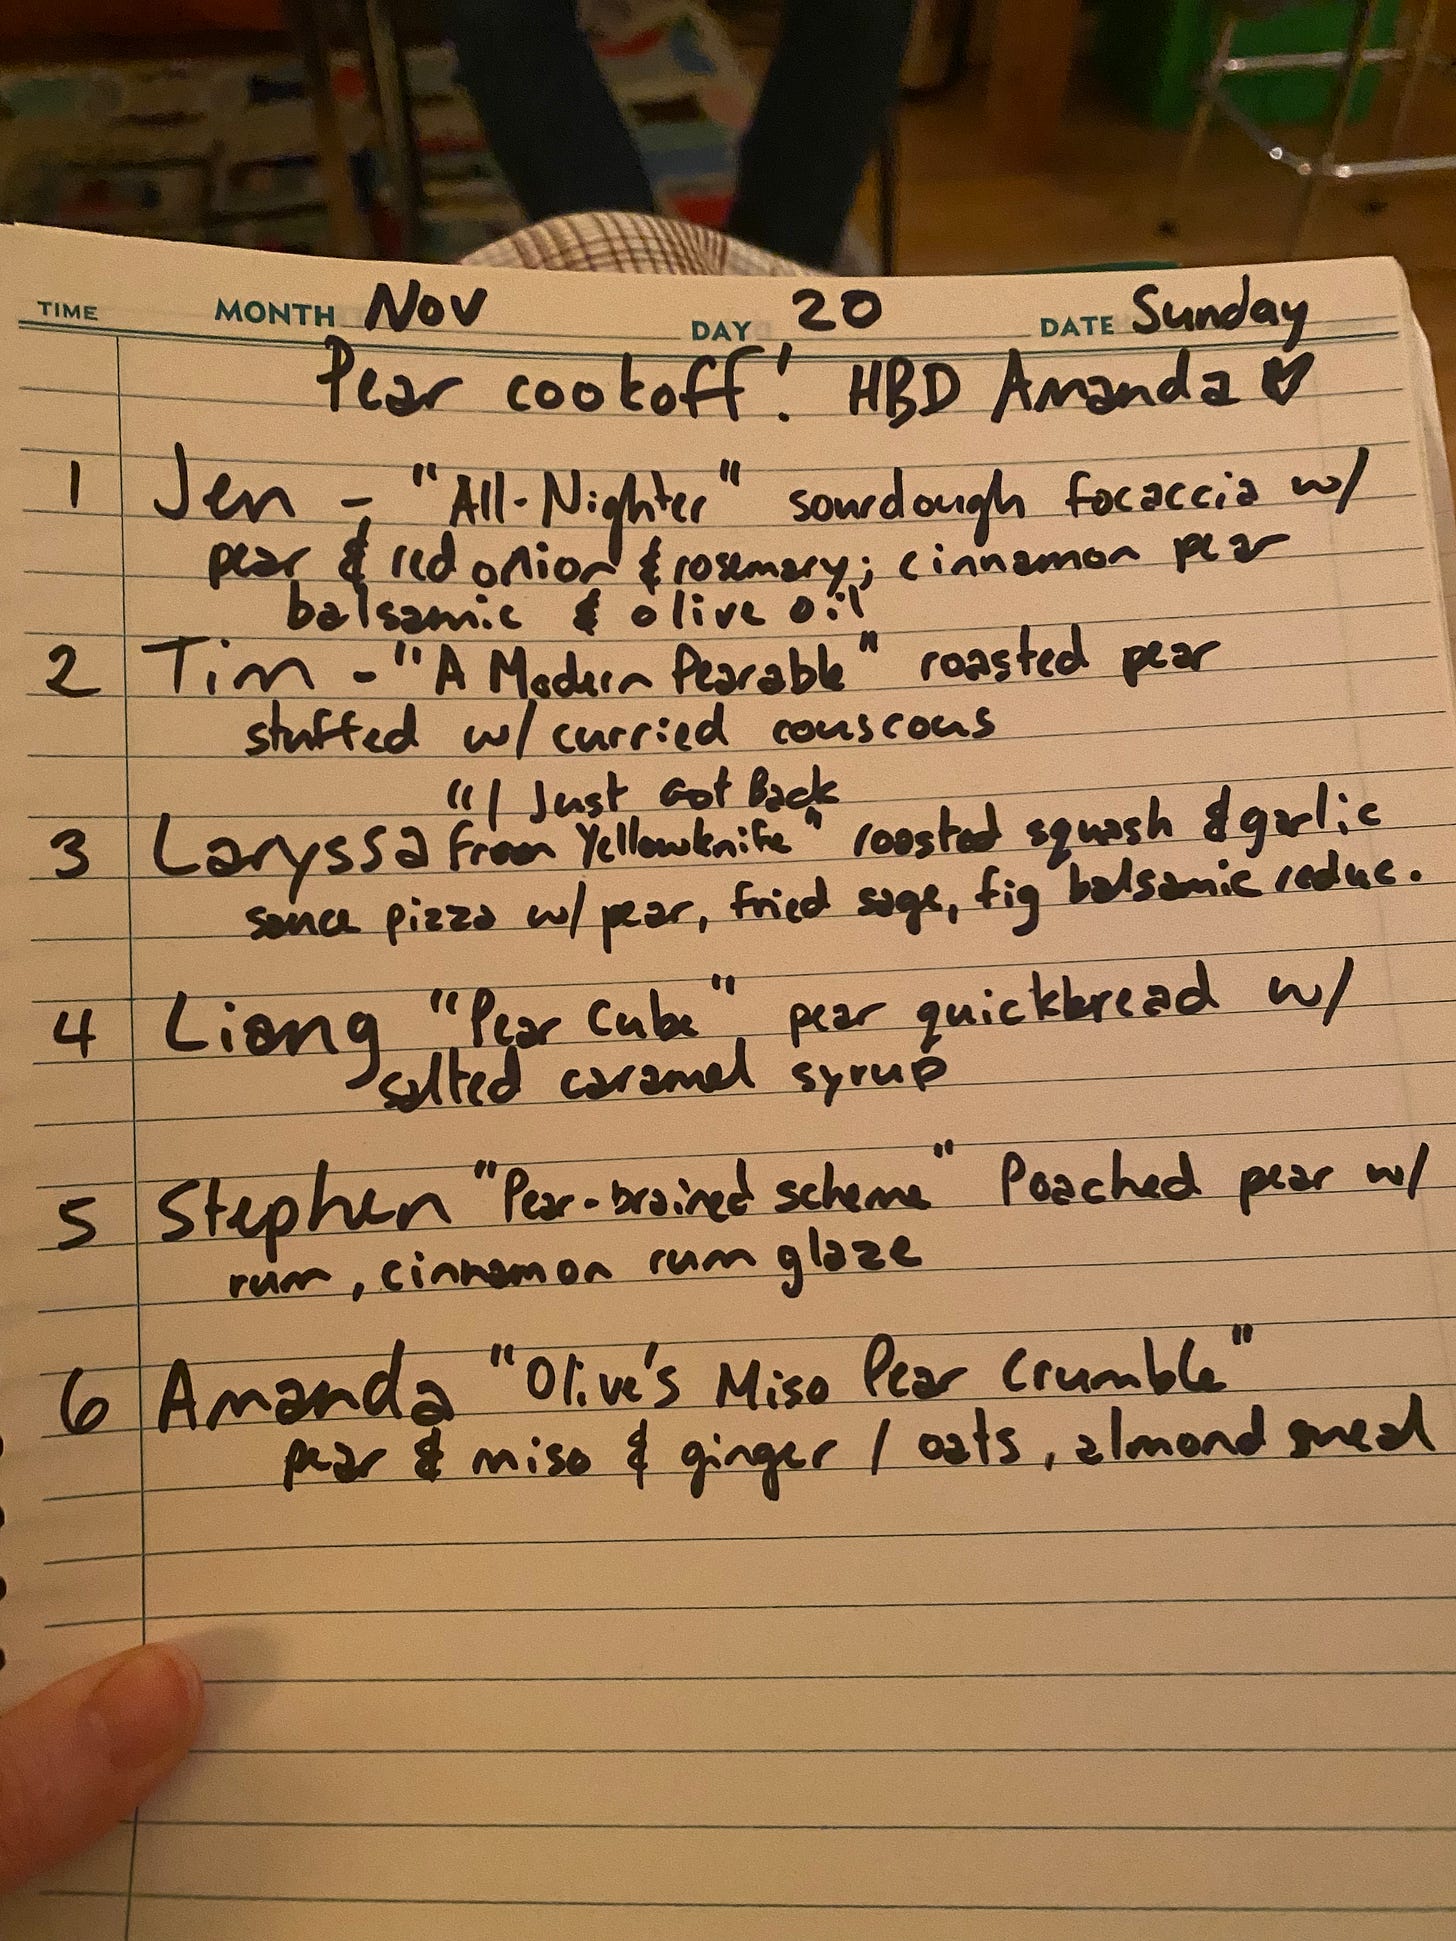 TIME MONTH Nov DAY 20 DATE Sunday
Pear cookoff! HBD Amanda ♥
1 Jen - "All-Nighter" sourdough focaccia w/
pear & red onion & rosemary; cinnamon pear
balsamic & olive oil
2 Tim - "A Modern Pearable" roasted pear
stuffed w/ curried couscous
"I Just Got Back
3 Laryssa from Yellowknife" roasted squash & garlic
sauce pizza w/ pear, fried sage, fig balsamic reduc.
4 Liang "Pear Cube" pear quickbread w/
salted caramel syrup
5 Stephen "Pear-brained scheme" Poached pear w/
rum, cinnamon rum glaze
6 Amanda "Olive's Miso Pear Crumble"
pear & miso & ginger / oats, almond meal